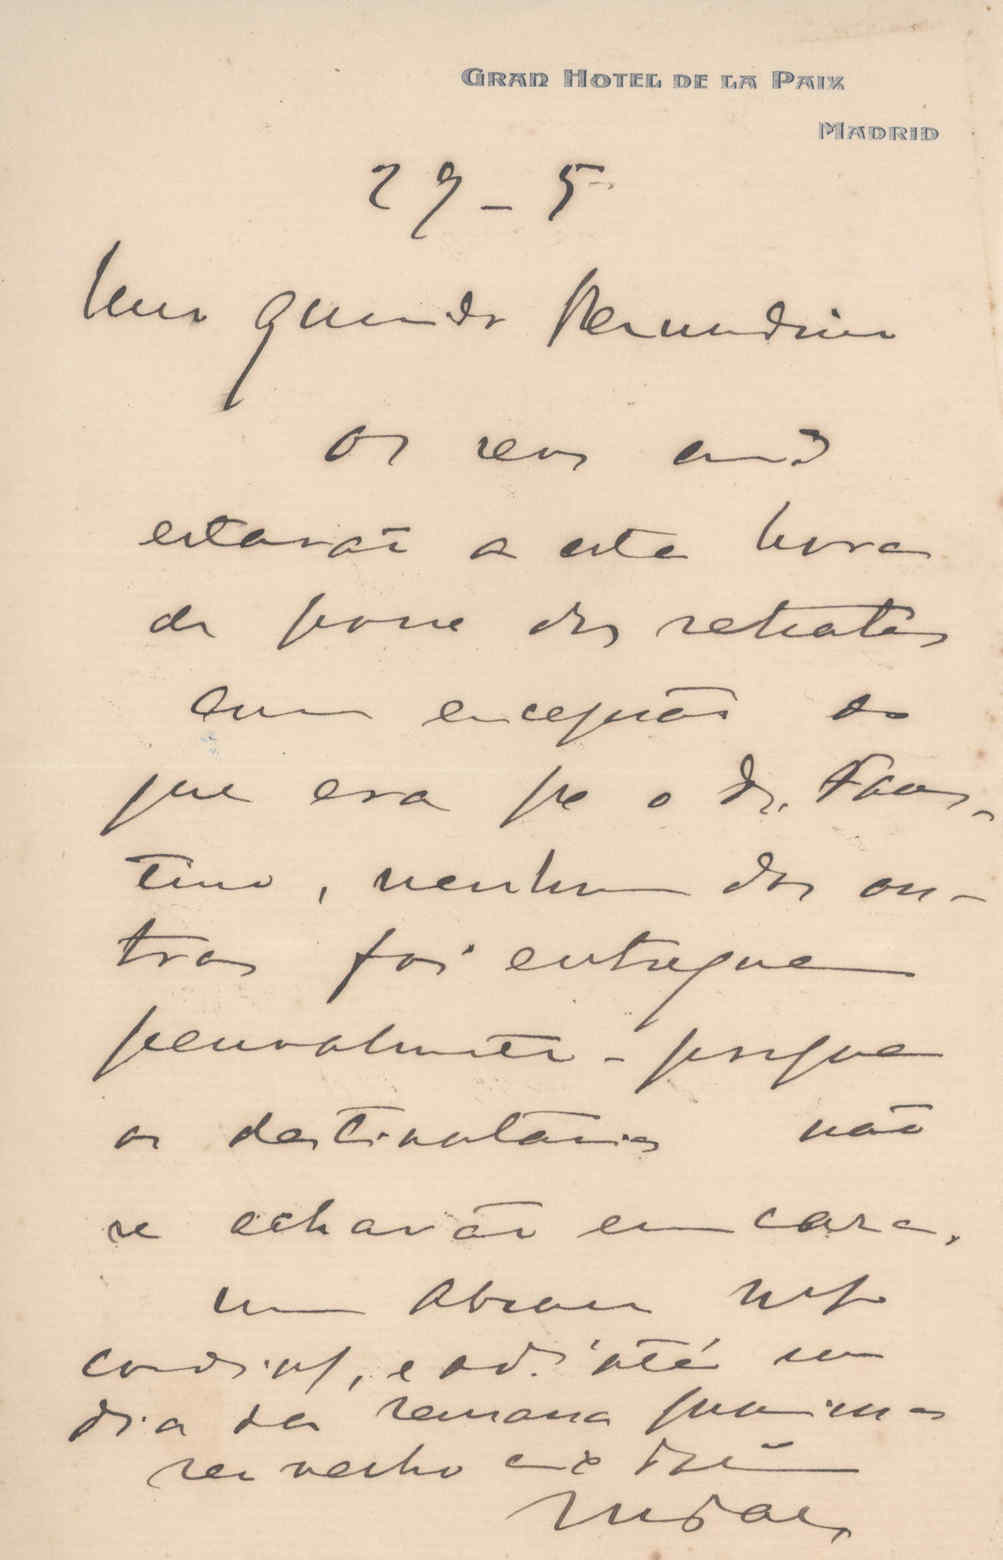 GRAN HOTEL DE LA PAIX
MADRID
29 - 5
Meu querido Bernardino
os seus am.os
estarão a esta hora
de posse dos retratos
com excepção do
que era pa o dr. Faus-
tino, nenhum dos ou-
tros foi entregue
pessoalmente - porque
os destinatarios não
se achavão em casa.
um abraço mto
cordial, e ad. até um
dia da semana proxima
seu velho am.o